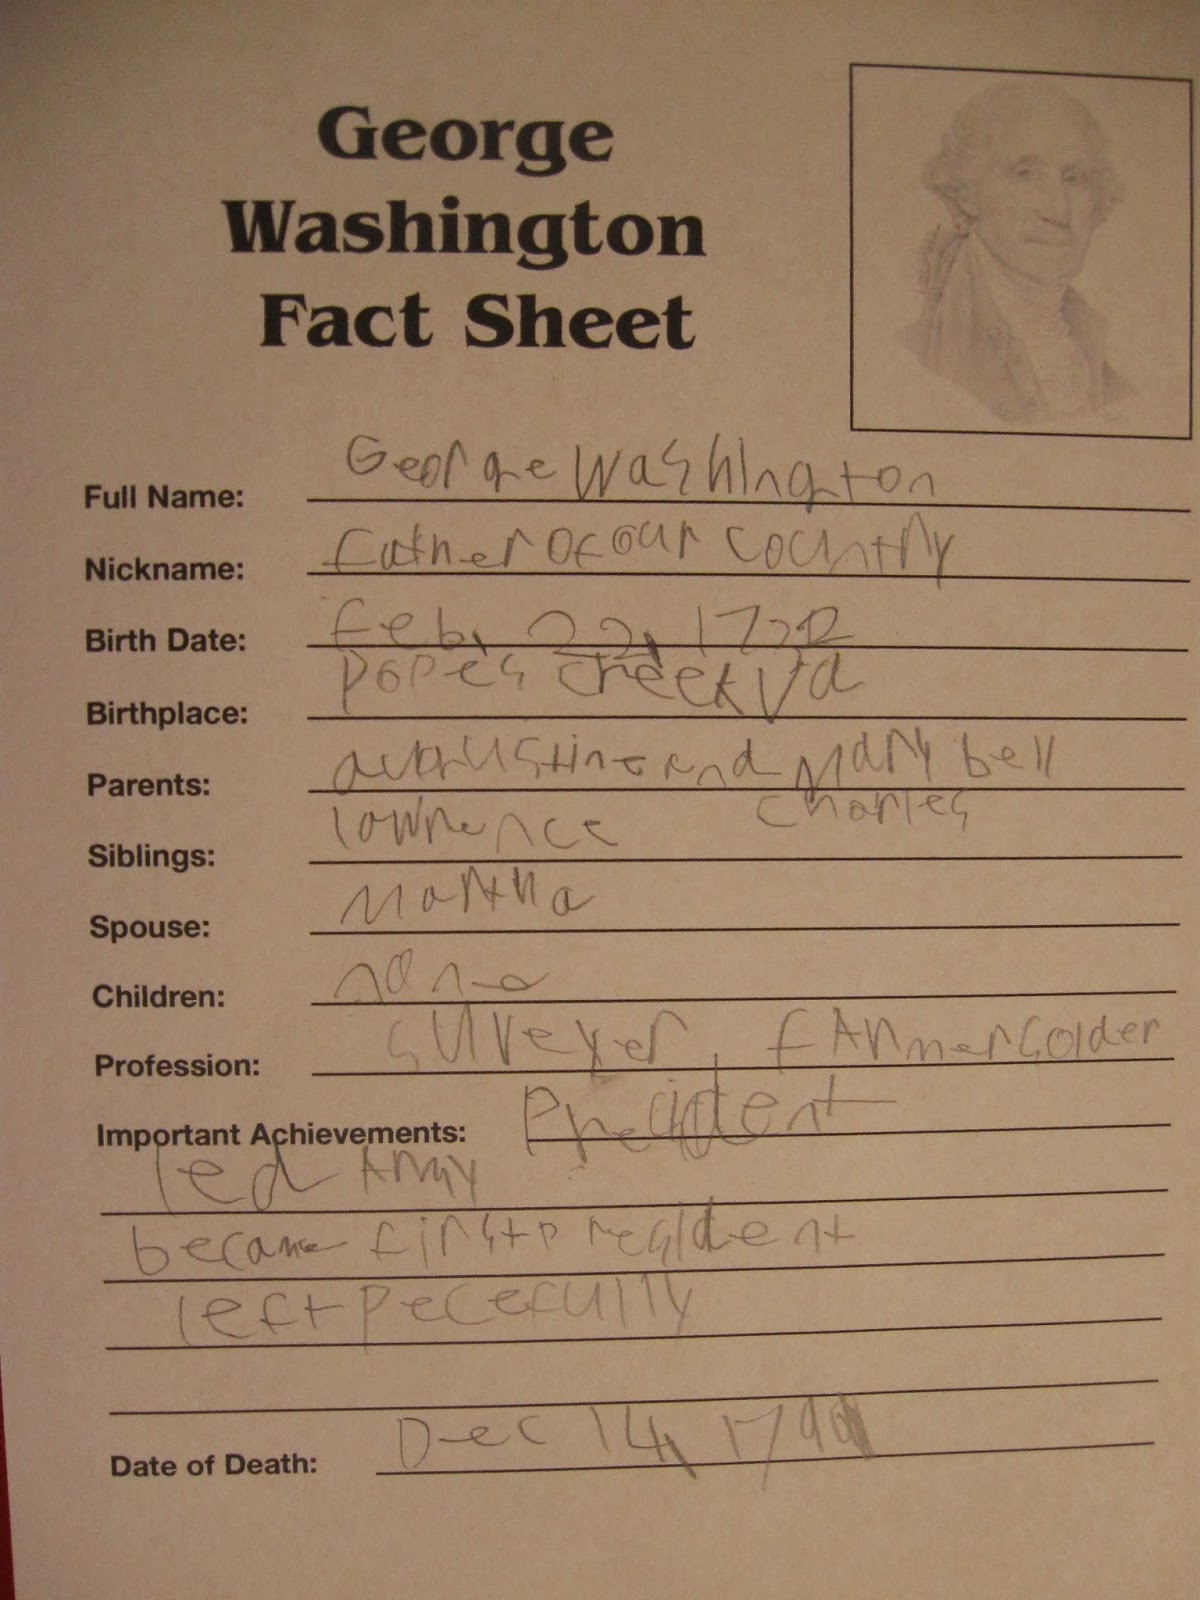 George
Washington
Fact Sheet
Full Name: George Washington
Nickname: father of our country
Birth Date: feb, 22, 1732
Birthplace: popes creek Va
Parents: augustine and Mary bell
Siblings: lawrence charles
Spouse: Martha
Children: none
Profession: surveyer, farmer solder
Important Achievements: President
led Army
became first president
left pecefully
Date of Death: Dec 14, 1799